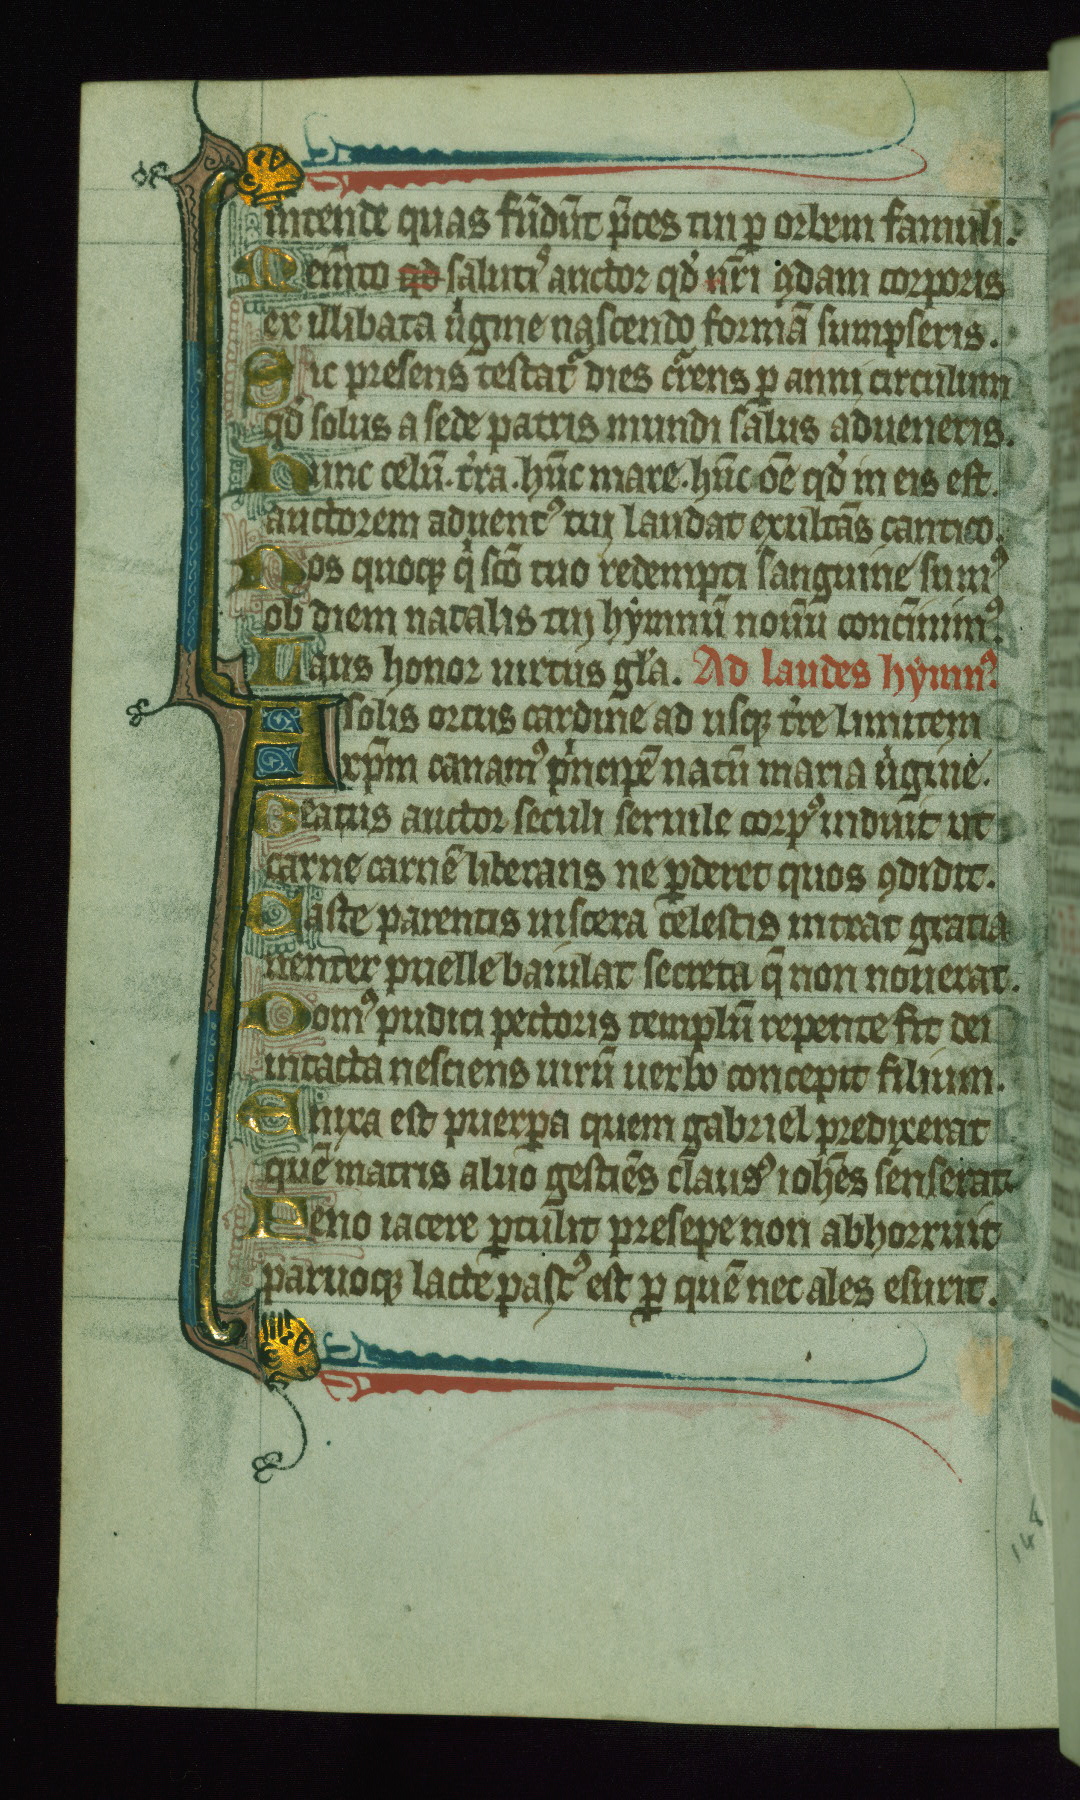 intende quas fūdūt p̄ces tui ꝑ orbem famuli.
Memīto qd saluti⁹ auctor qd̛ nr̄i ꝯdam corporis
ex illibata ůgine nascendo formā sumpseris.
Sic presens testat᷑ dies cr̄rens ꝑ anni circulum
qd̛ solus a sede patris mundi salus adueneris.
Hunc celū. t̛ra. hūc mare. hūc oē̄ qd̛ in eis est.
auctorem aduent⁹ tui laudat exultās cantico.
Nos quoqꝫ q̛ sc̄o tuo redempti sanguine sum⁹
ob diem natalis tui hẏmnū nouū concinim⁹.
Laus honor uirtus gl̛a. Ad laudes hẏmn⁹
A solis ortus cardine ad usqꝫ t̛re limitem
xp̄m canam⁹ p̛ncipē natū maria ůgine.
Beatus auctor seculi seruile corp⁹ induit ut
carne carnē liberans ne ꝑderet quos ꝯdidit.
Caste parentis uiscera celestis intrat gratia
uenter puelle baiulat secreta q̄ non nouerat.
Dom⁹ pudici pectoris templū repente fit dei
intacta nesciens uirū uerbo concepit filium.
Enixa est puerꝑa quem gabriel predixerat
quē matris aluo gestiēs claus⁹ ioh̄es senserat
Feno iacere ꝑtulit presepe non abhorruit
paruoqꝫ lacte past⁹ est ꝑ quē nec ales esurit.
148